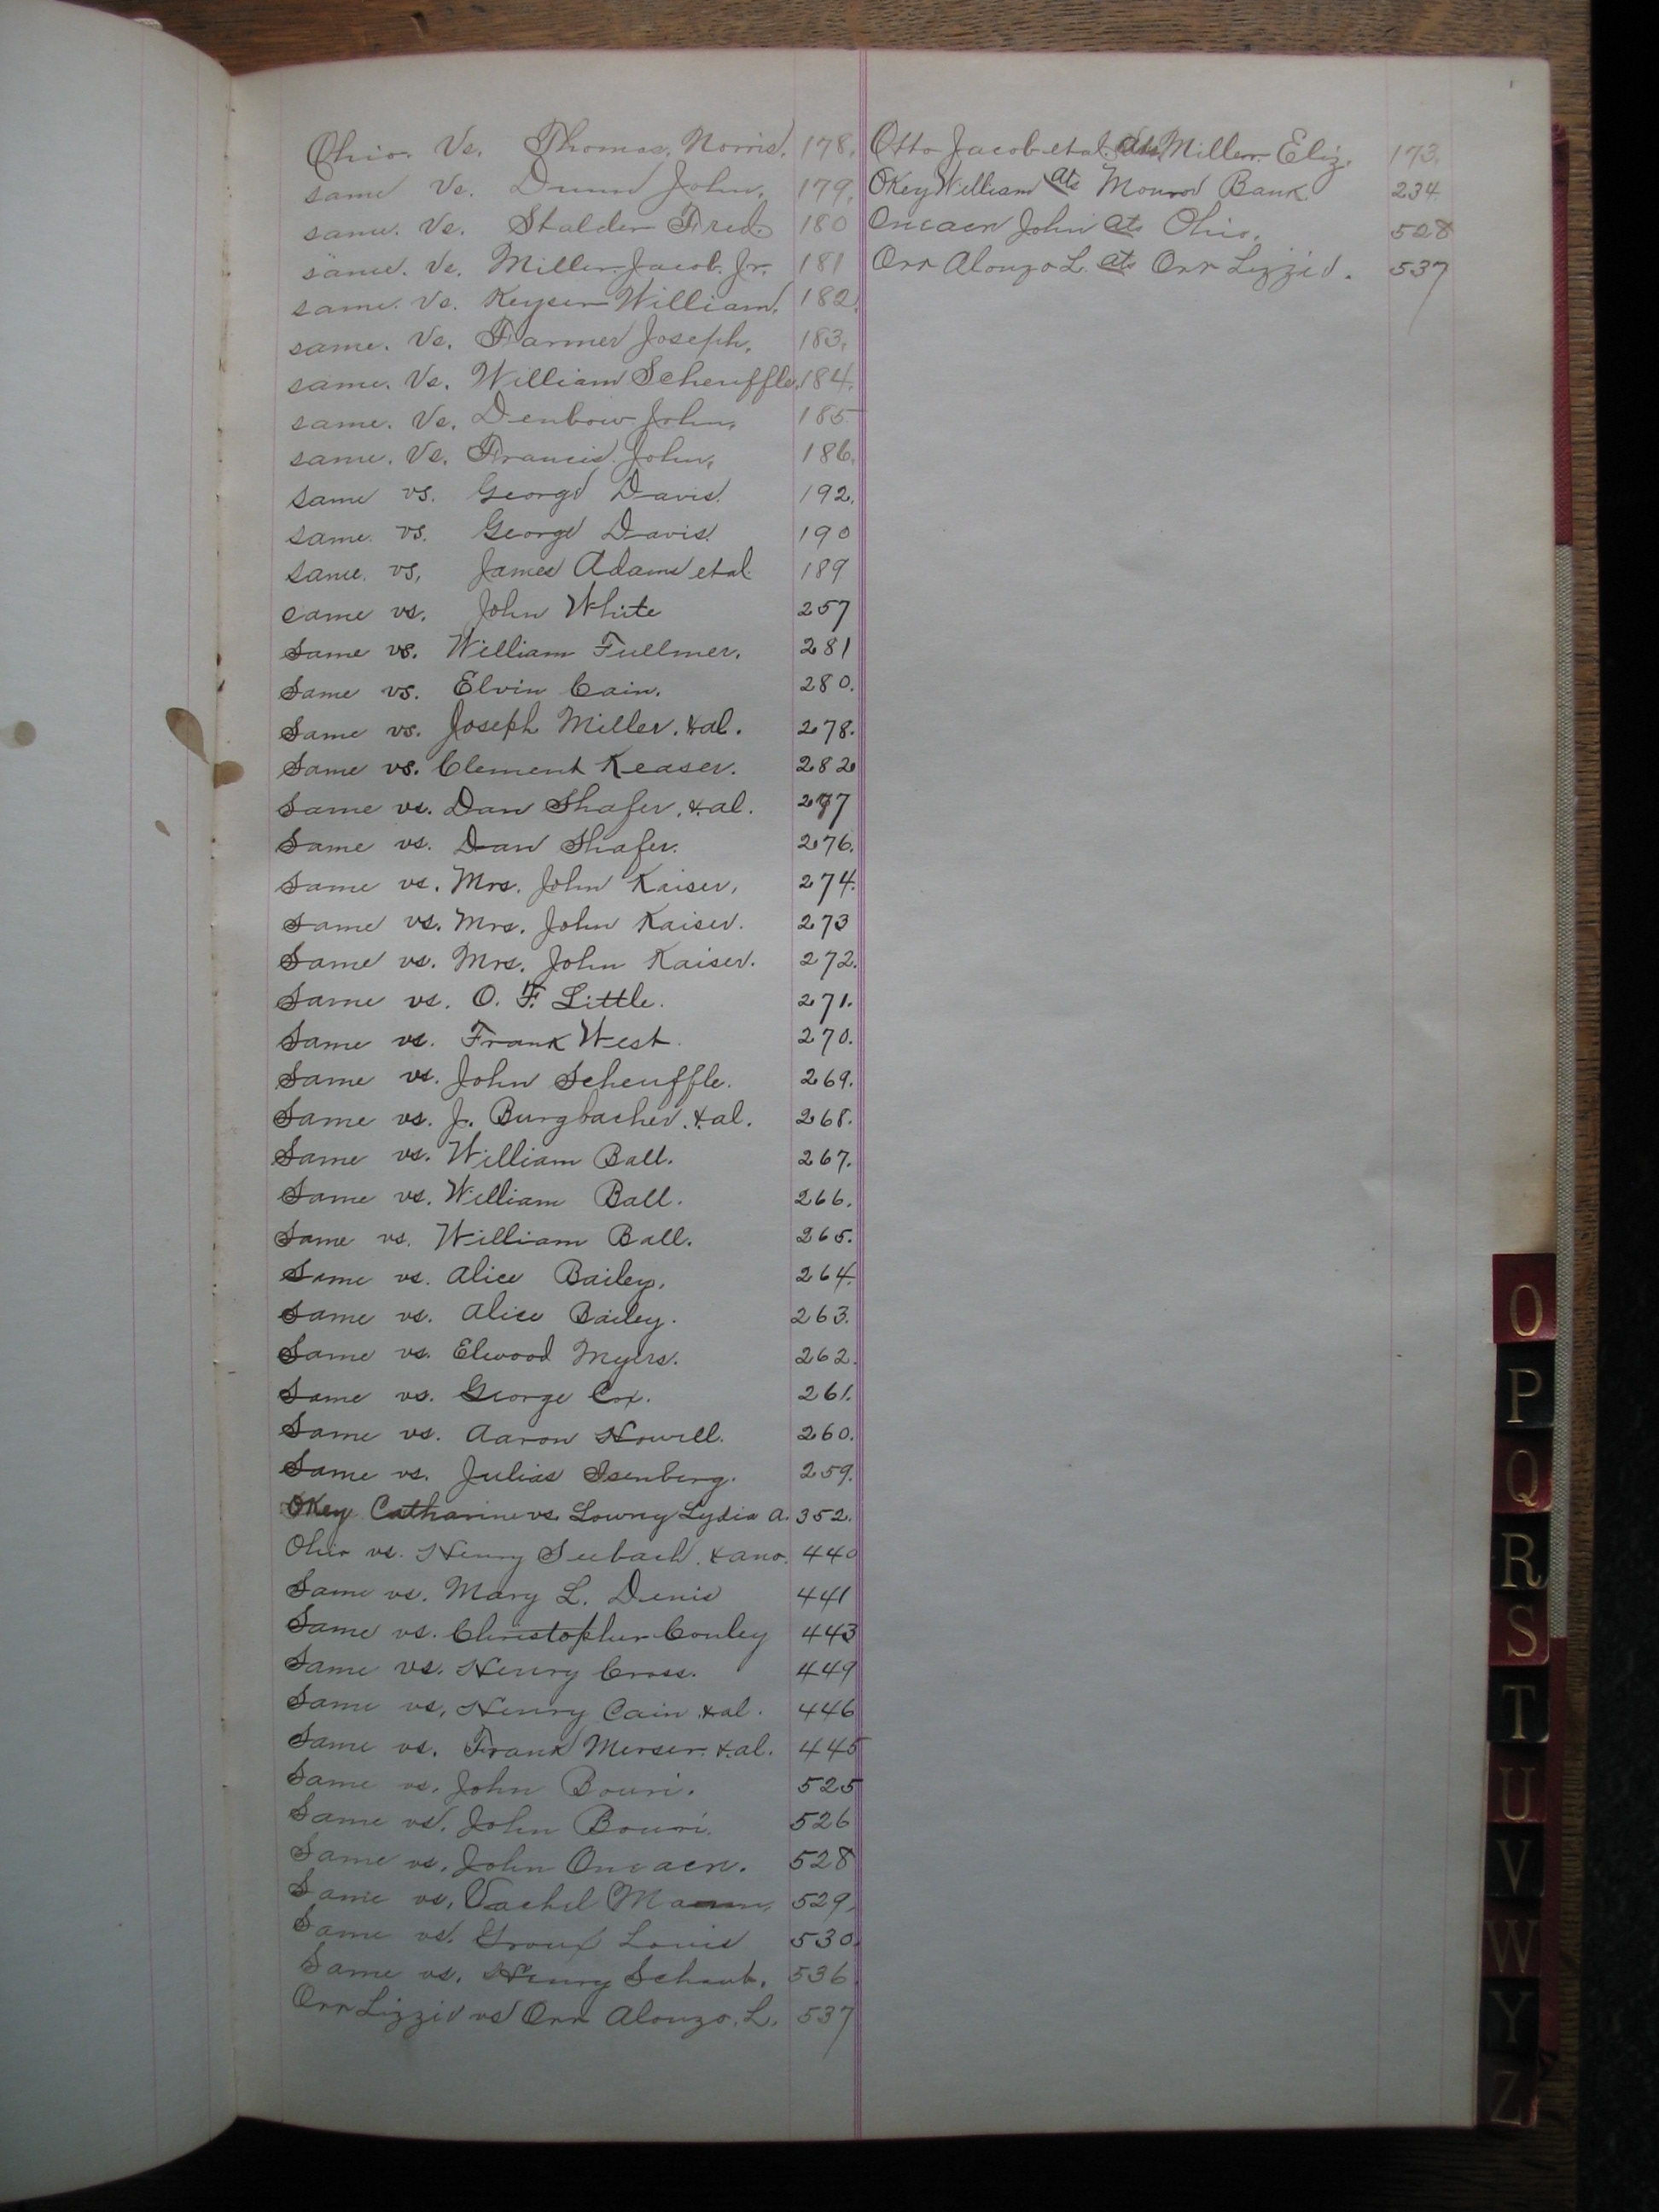 Ohio. Vs. Thomas. Norris. 178.
same Vs. Dunn John. 179.
same. Vs. Stalder Fred. 180
same. Vs. Miller Jacob. Jr. 181
same. Vs. Keyser William. 182.
same. Vs. Farmer Joseph. 183.
same. Vs. William Scheuffle. 184.
same. Vs. Denbow John. 185
same. Vs. Francis. John. 186.
same vs. George Davis. 192.
same. vs. George Davis. 190
same. vs. James Adams et al. 189
same vs. John White 257
Same vs. William Fullmer. 281
Same vs. Elvin Cain. 280.
Same vs. Joseph Miller. &al. 278.
Same vs. Clement Keaser. 282
Same vs. Dan Shafer. &al. 277
Same vs. Dan Shafer. 276.
Same vs. Mrs. John Kaiser. 274.
Same vs. Mrs. John Kaiser. 273
Same vs. Mrs. John Kaiser. 272.
Same vs. O. F. Little. 271.
Same vs. Frank West. 270.
Same vs. John Scheuffle. 269.
Same vs. J. Burgbacher. &al. 268.
Same vs. William Ball. 267.
Same vs. William Ball. 266.
Same vs. William Ball. 265.
Same vs. Alice Bailey. 264.
Same vs. Alice Bailey. 263.
Same vs. Elwood Myers. 262.
Same vs. George Cox. 261.
Same vs. Aaron Howell. 260.
Same vs. Julias Isenberg. 259.
OKey Catharine vs. Lowry Lydia A. 352.
Ohio vs. Henry Seebach. & ano. 440
Same vs. Mary L. Denis 441
Same vs. Christopher Conley 443
Same vs. Henry Cross. 449
Same vs. Henry Cain &al. 446
Same vs. Frank Merser. &al. 445
Same vs. John Bouri. 525
Same vs. John Bouri. 526
Same vs. John 528
Same vs. Vachel 529.
Same vs. Groux Louis 530.
Same vs. Henry Schaub. 536
Orr Lizzie vs Orr Alonzo. L. 537
Otto Jacob et al. ats Miller Eliz. 173.
OKey William ats Monroe Bank 234
John ats Ohio. 528
Orr Alonzo L. ats Orr Lizzie. 537
O
P
Q
R
S
T
U
V
W
Y
Z